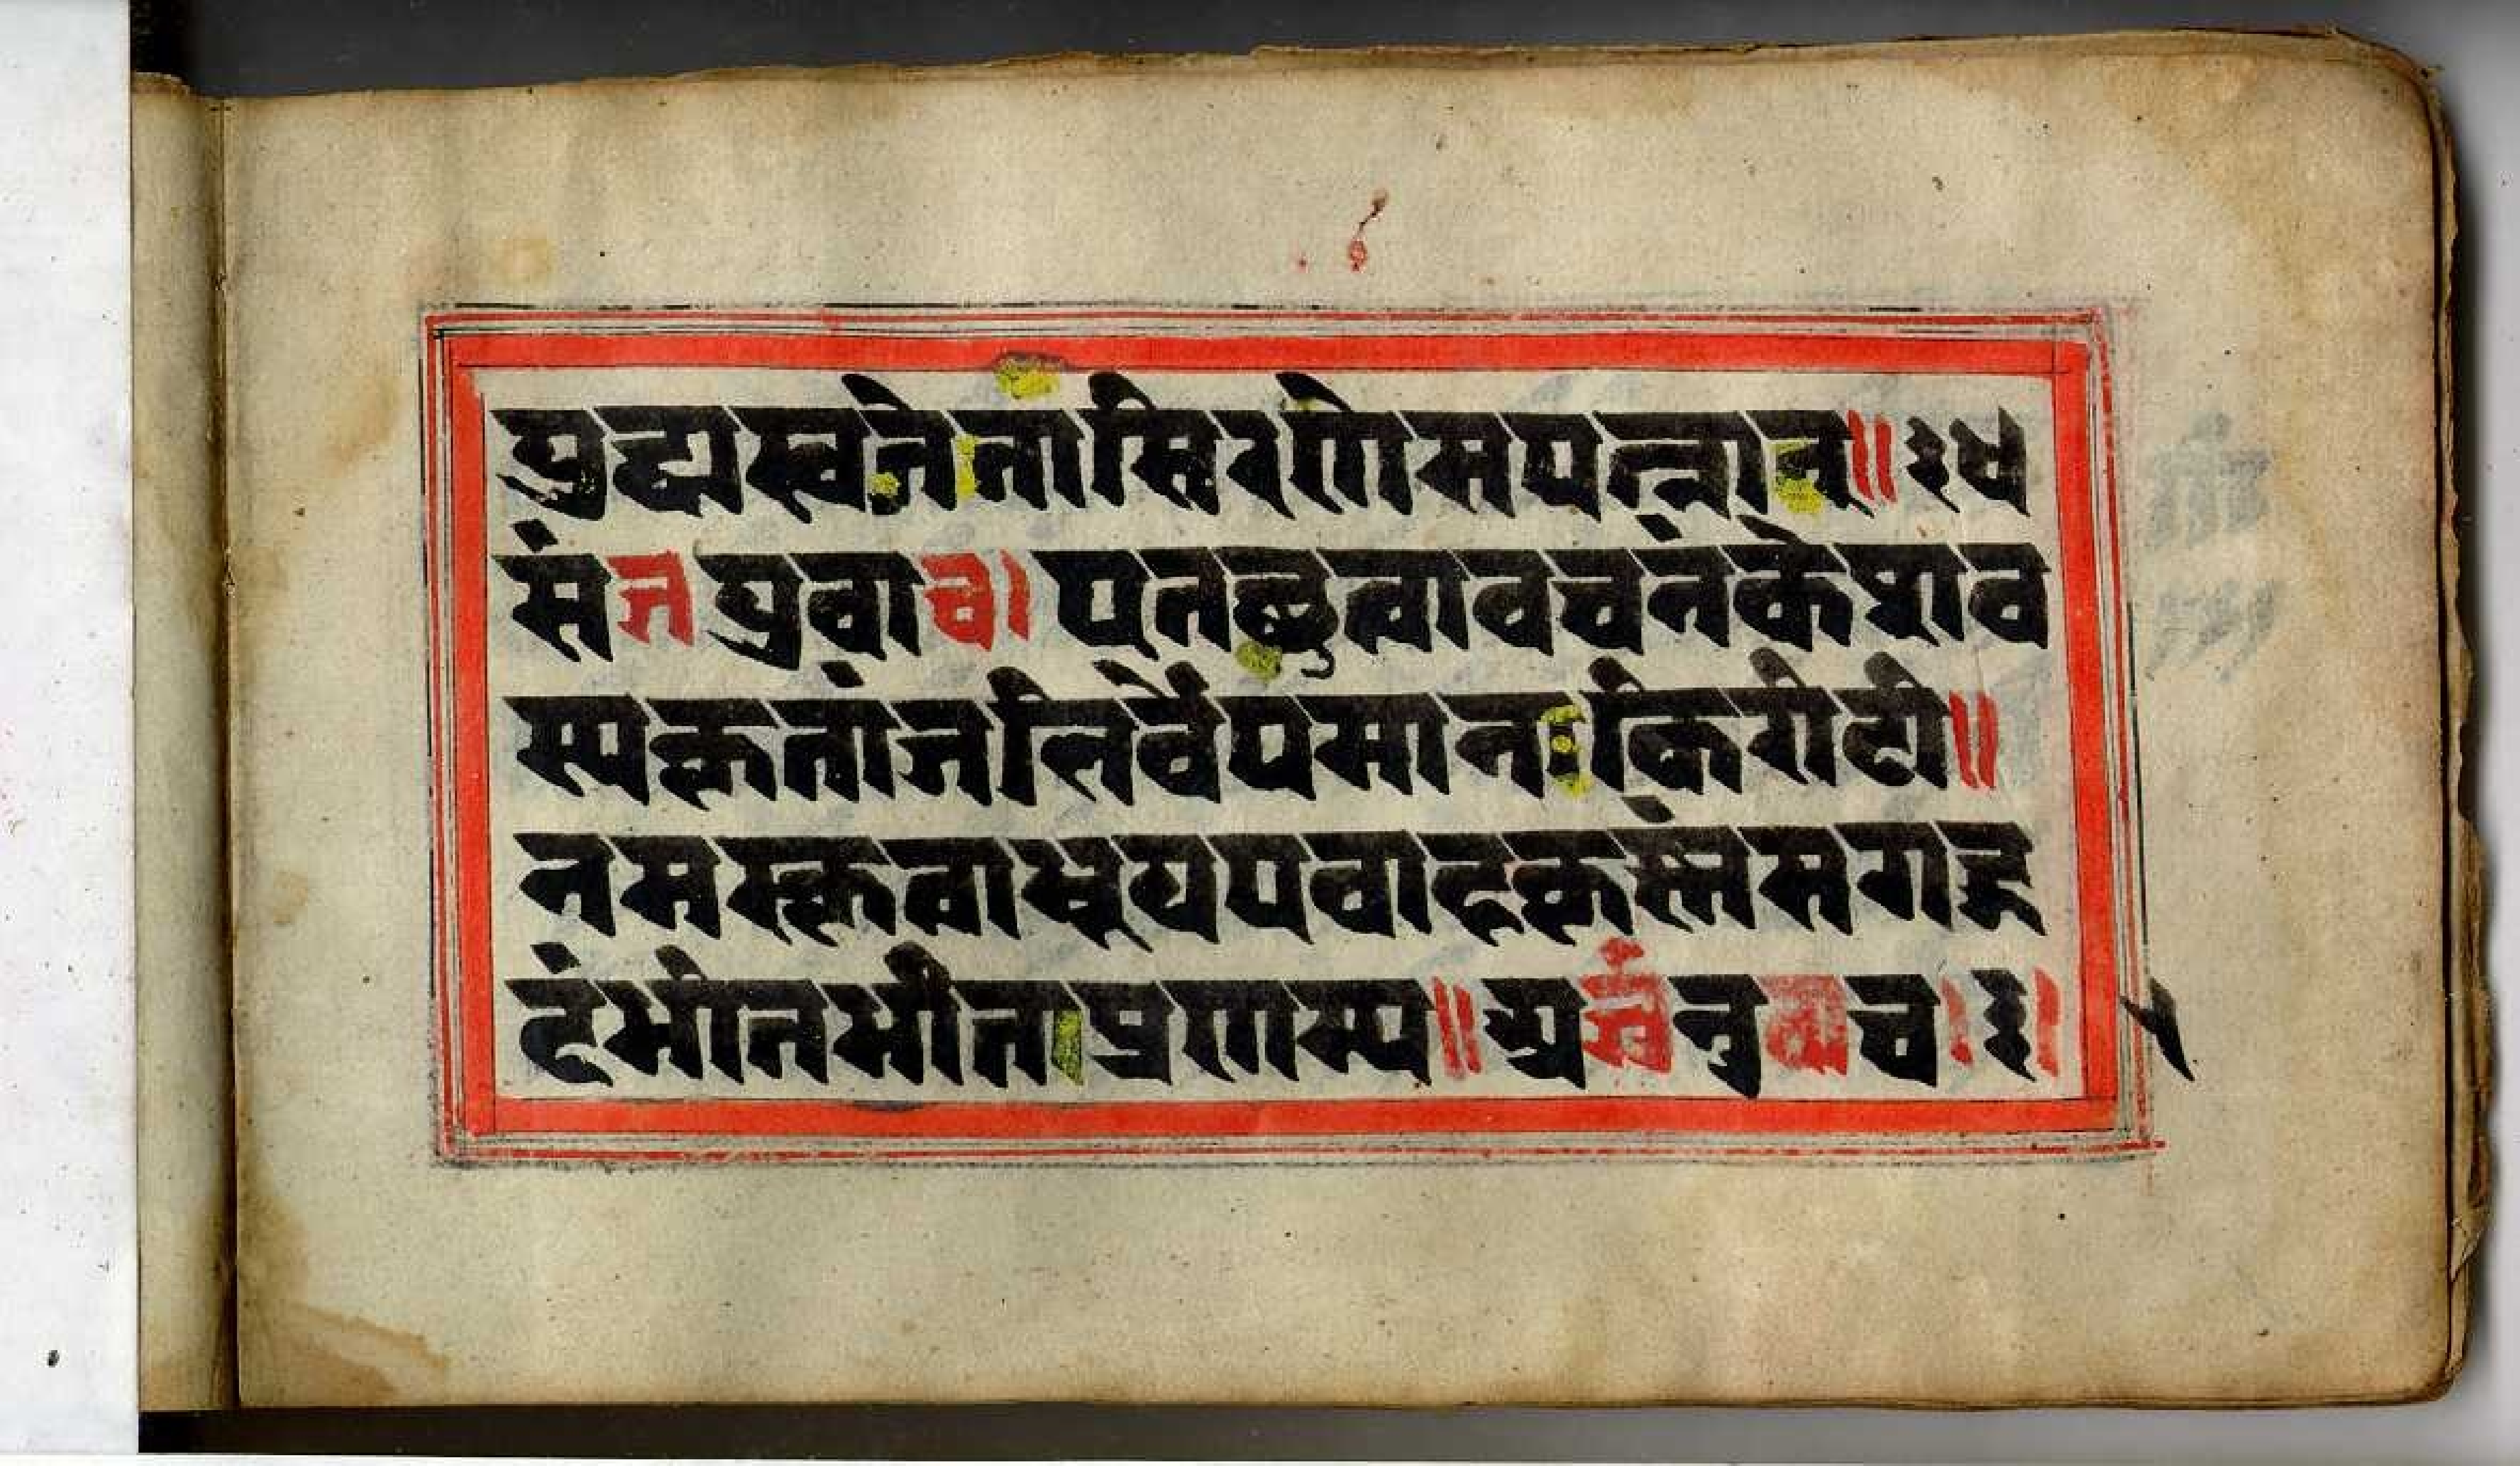 युद्ध्यस्वजेतासिरणेसपत्नान्॥३४
संजयउवाच।एतच्छ्रुत्वावचनंकेशव
स्यकृतांजलिर्वेपमानःकिरीटी॥
नमस्कृत्वाभूयएवाहकृस्नंसगद्ग
दंभीतभीतःप्रणम्य॥अर्जुनउवाच।३।